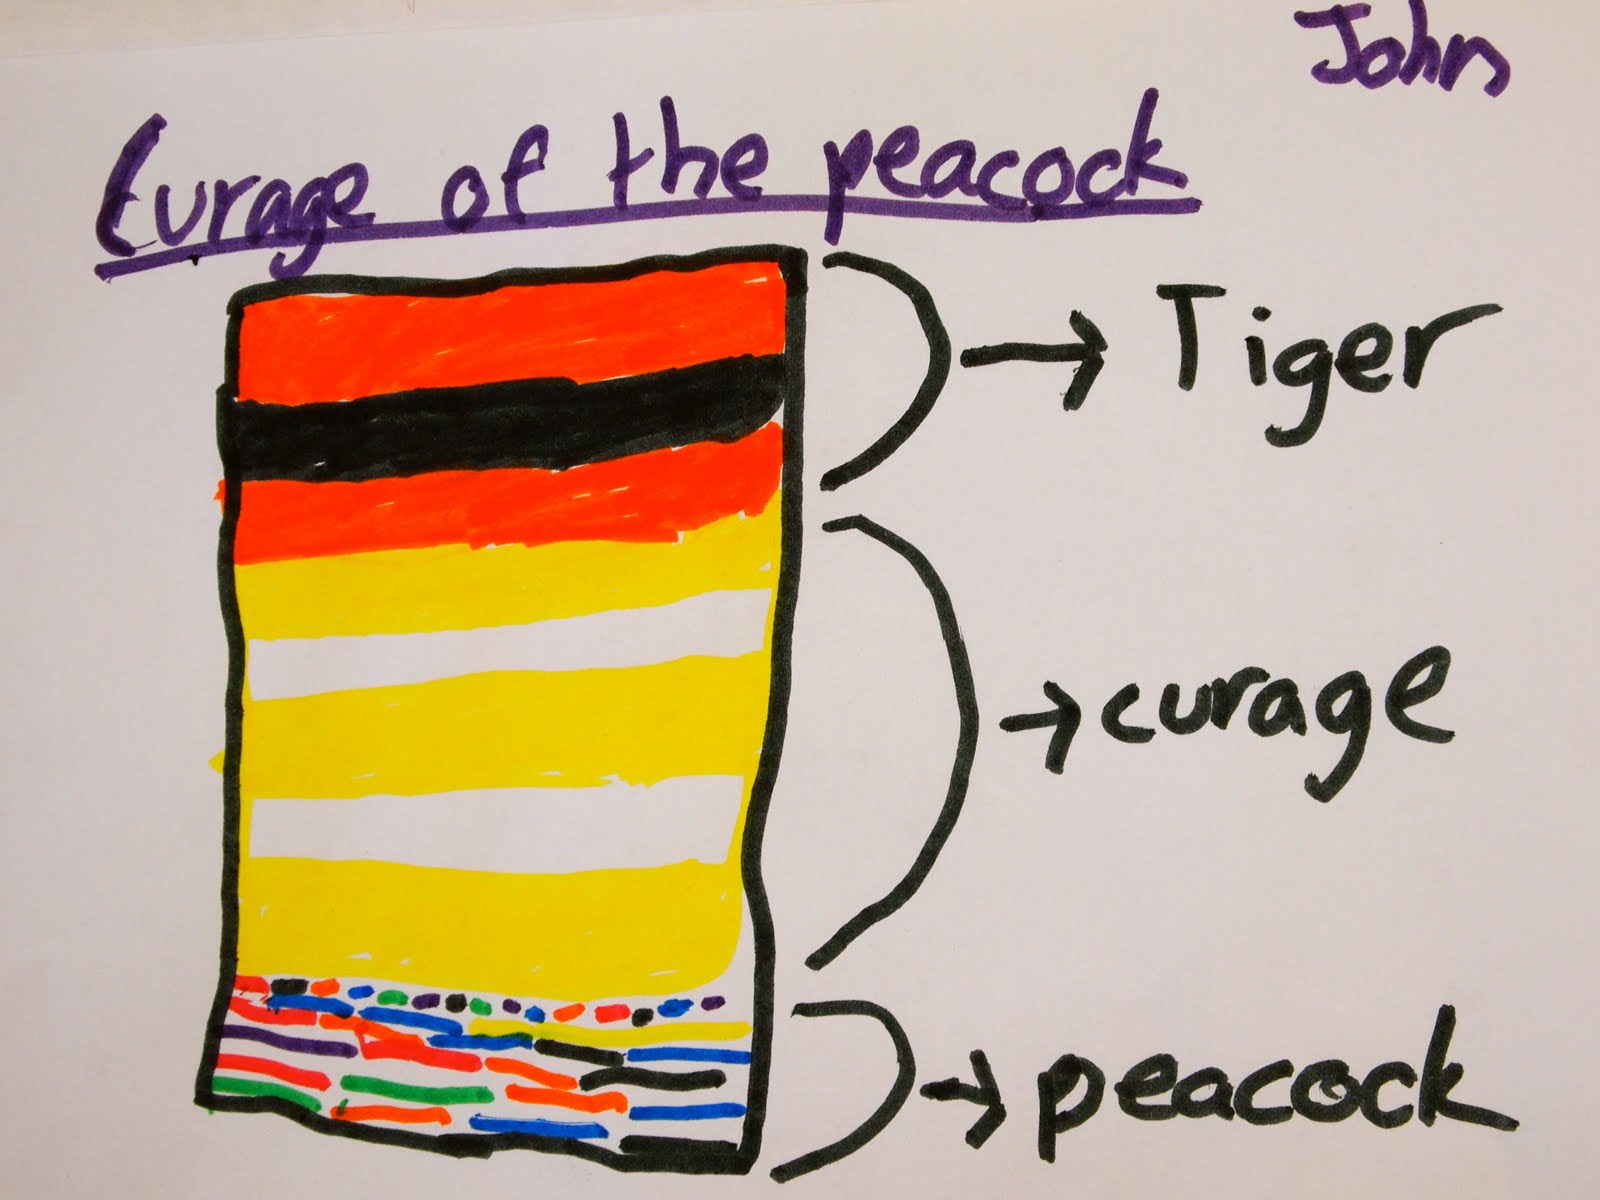 John
Curage of the peacock
Tiger
curage
peacock